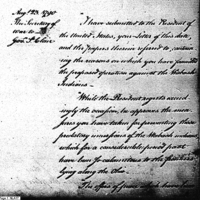 Aug 23. 1790
The Secretary of
War to
Gov. St Clair
I have submitted to the President of
the United States, your Letter of this date,
and the Papers therein referred to, contain-
ing the reasons on which you have founded
the proposed operations against the Wabash
Indians.
While the President regrets exceed-
ingly the occasion, he approves the mea-
sures you have taken for preventing those
predatory incursions of the Wabash indians
which for a considerable period past
have been so calamitous to the frontiers
lying along the Ohio.
The offers of peace which have been